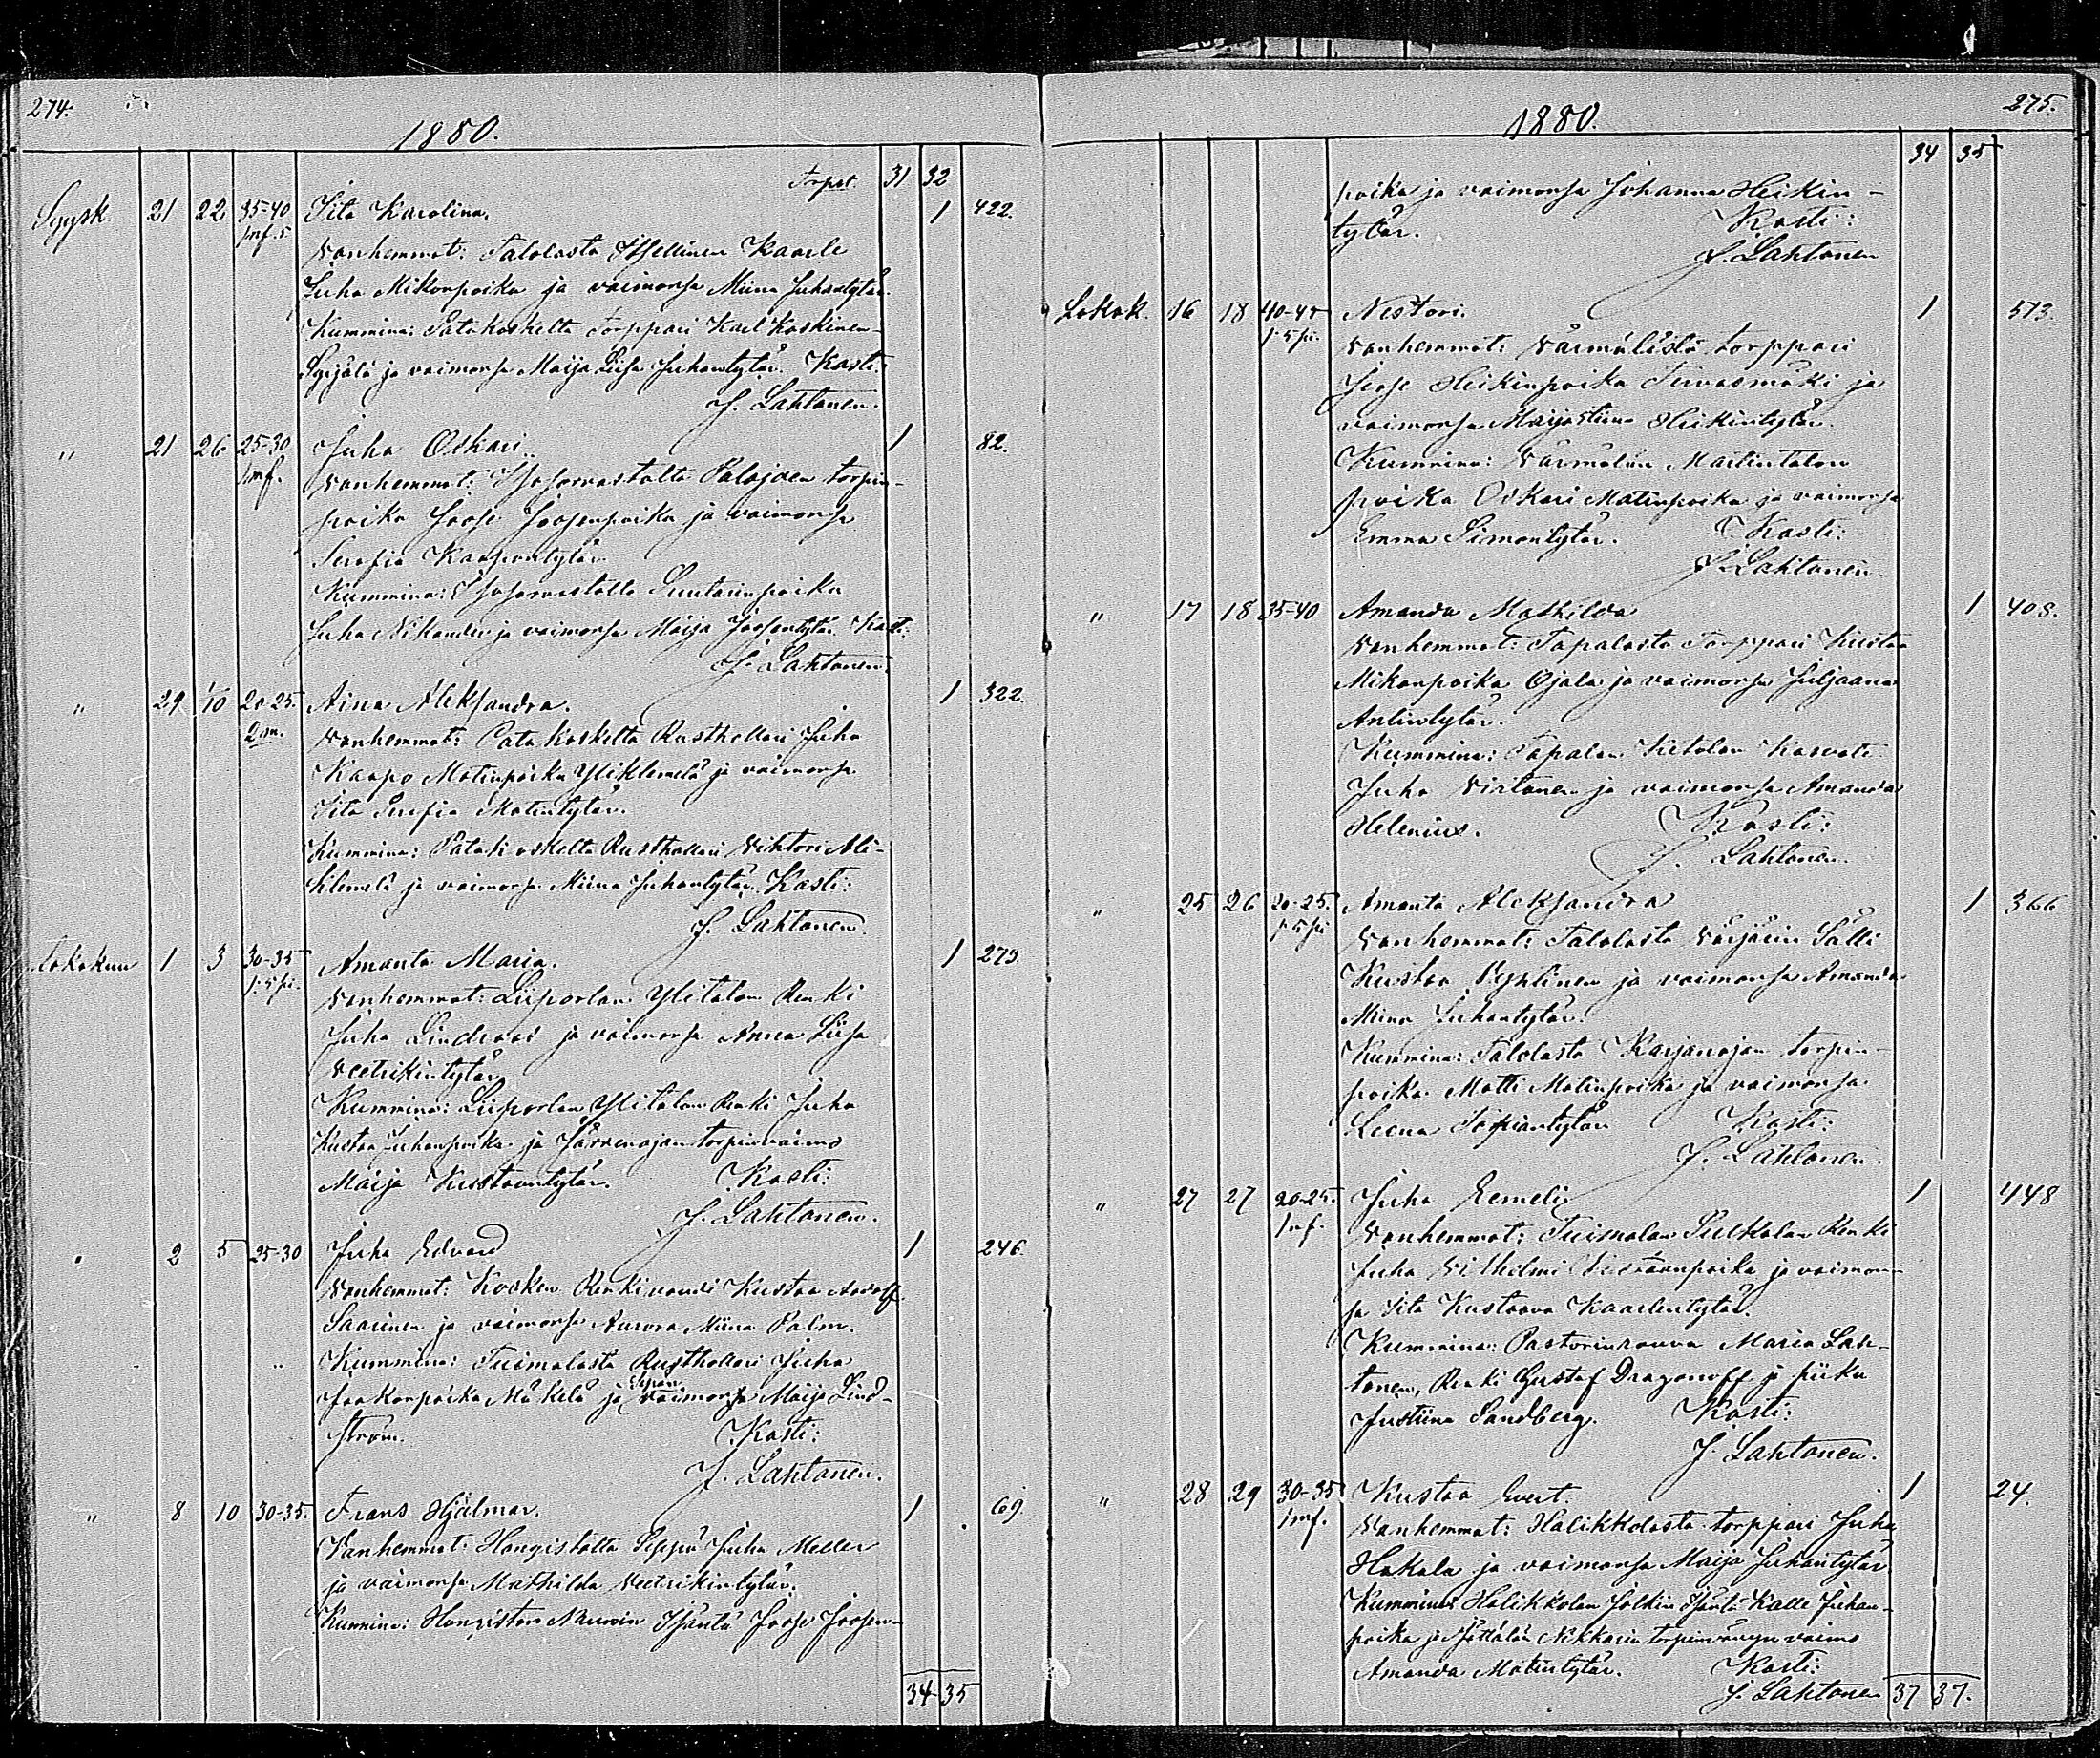 274.
1880.
Trpst. 31 32
Syysk. 21 22 35-40 Iita Karolina. 1 422.
inf. 5 Vanhemmat: Talolasta Itsellinen Kaarle
Juha Mikonpoika ja vaimonsa Miina Juhantytär.
Kummina: Patakoskelta Torppari Karl Koskinen-
Syrjälä ja vaimonsa Maija Liisa Juhantytär. Kasti:
J. Lahtonen.
" 21 26 25-30 Juha Oskari. 1 82.
inf. Vanhemmat: Isosorvastolta Palojoen torpin-
poika Joose Joosenpoika ja vaimonsa
Serafia Kaaperintytär.
Kummina: Isosorvastolta Suutarinpoika
Juha Nikander ja vaimonsa Maija Joosentytär. Kasti:
J. Lahtonen.
" 29 1/10 20-25. Aina Aleksandra. 1 322.
2 m. Vanhemmat: Patakoskelta Rusthollari Juha
Kaapo Matinpoika Yliklemelä ja vaimonsa
Iita Serafia Matintytär.
Kummina: Patakoskelta Rusthollari Viktori Ali-
klemelä ja vaimonsa Miina Juhantytär. Kasti:
J. Lahtonen.
Lokakuu 1 3 30-35 Amanta Maria. 1 279.
j: 5 pi. Vanhemmat: Liiporlan Ylitalon Renki
Juha Lindroos ja vaimonsa Anna Liisa
Veetrikintytär.
Kummina: Liiporlan Ylitalon Renki Juha
Kustaa Juhanpoika ja Järvenojan torpinvaimo
Maija Kustaantytär. Kasti:
J. Lahtonen.
" 2 5 25-30 Juha Edvard 1 246.
Vanhemmat: Kosken Renkivouti Kustaa Adolf
Saarinen ja vaimonsa Aurora Miina Palm.
Kummina: Tuimalasta Rusthollari Juha
Jaakonpoika Mäkelä ja Sepän vaimonsa Maija Lind-
ström. Kasti:
J. Lahtonen.
" 8 10 30-35. Frans Hjalmar. 1 69.
Vanhemmat: Hongistolta Seppä Juha Meller
ja vaimonsa Mathilda Veetrikintytär.
Kummina: Hongiston Isäntä Joose Joosen-
34 35
275.
1880.
34 35
poika ja vaimonsa Johanna Heikin-
tytär. Kasti:
J. Lahtonen
Lokak. 16 18 40-45 Nestori. 1 573.
j: 5 pi. Vanhemmat: Värmälästä torppari
Joose Heikinpoika Tervasmäki ja
vaimonsa Maijastiina Heikintytär.
Kummina: Värmälän Mailintalon
poika Oskari Matinpoika ja vaimonsa
Emma Simontytär. Kasti:
J. Lahtonen.
" 17 18 35-40 Amanda Mathilda 1 408.
Vanhemmat: Tapalasta Torppari Kustaa
Mikonpoika Ojala ja vaimonsa Juljaana
Antintytär.
Kummina: Tapalan Kietolan Kasvati
Juha Virtanen ja vaimonsa Amanda
Helenius. Kasti:
J. Lahtonen.
" 25 26 20-25. Amanta Aleksandra 1 366
j: 5 pi Vanhemmat: Talolasta Värjärin Sälli
Kustaa ja vaimonsa Amanda
Miina Juhantytär.
Kummina: Talolasta Karjanojan torpin-
poika Matti Matinpoika ja vaimonsa
Leena Sofiantytär Kasti:
J. Lahtonen.
" 27 27 20-25. Juha Eemeli 1 448
inf. Vanhemmat: Tuimalan Sulkalan Renki
Juha Vilhelmi Kustaanpoika ja vaimon-
sa Iita Kustaava Kaarlentytär.
Kummina: Pastorinrouva Maria Lah-
tonen, Renki Gustaf Dragonoff ja piika
Justiina Sandberg. Kasti:
J. Lahtonen.
" 28 29 30-35 Kustaa Evert. 1 24.
inf. Vanhemmat: Halikkolasta torppari Juha
Hakala ja vaimonsa Maija Juhantytär.
Kummina: Halikkolan Jolkin Isäntä Kalle Juhan-
poika ja Nikkarin torpin vaimo
Amanda Matintytär. Kasti:
J. Lahtonen 37 37.